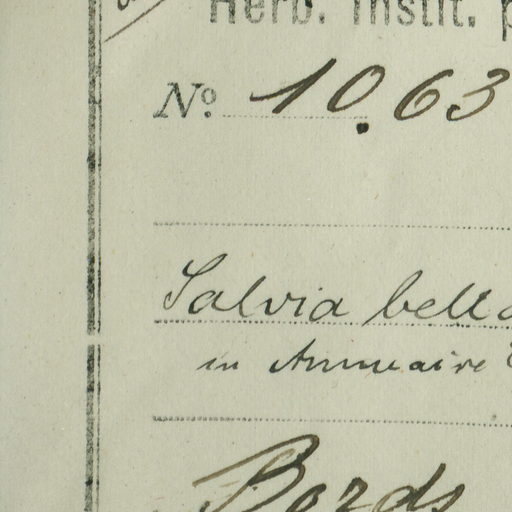 Herb. Instit.
No. 10.63
Salvia bella
in Annuaire
Bords